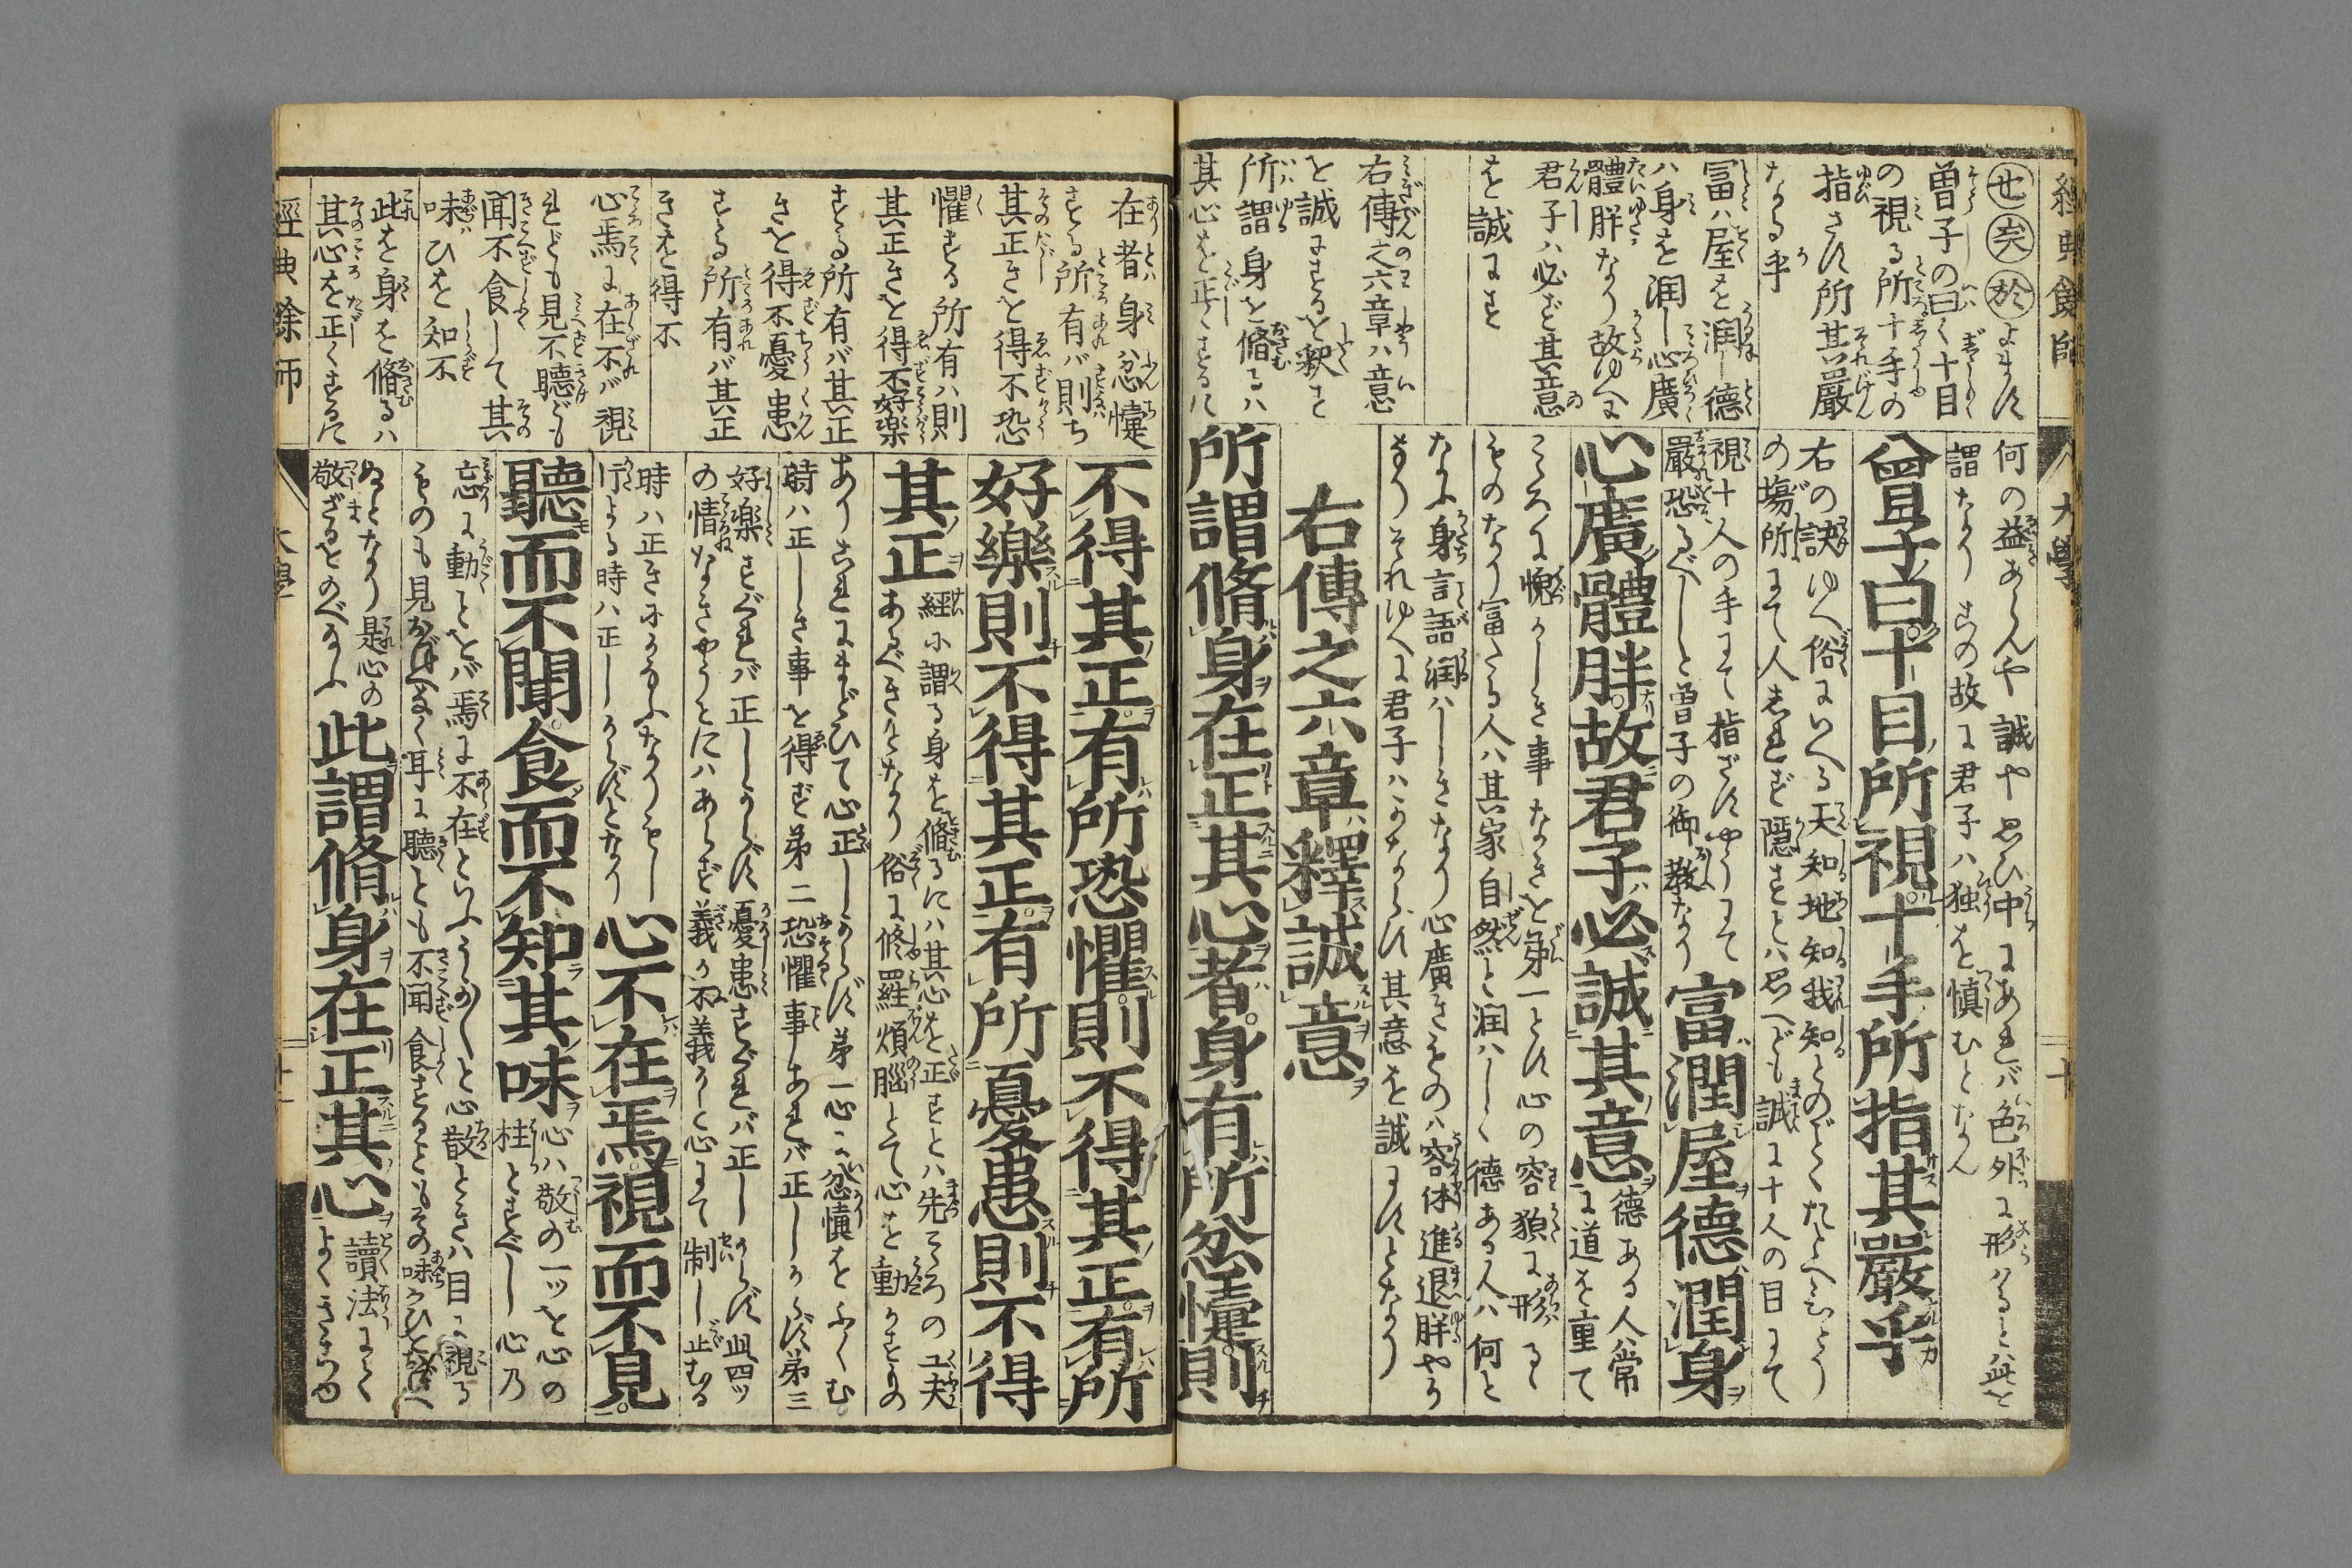 經典餘師
大學
十
㊀也 矣 於 よまず
曽子の曰く十目
の視る所十手の
指さす所其嚴
なる乎
冨ハ屋を潤し德
ハ身を潤し心廣
體胖なり故ゆへに
君子ハ必ず其意
を誠にす
右傳之六章ハ意
を誠にするを釈す
所謂身を脩るハ
其心を正くするに
何の益あらんや誠や思ひ中にあれバ色外に形ハるとハ此を
謂なり この故に君子ハ独を慎むとなん
曾子曰十目所視十手所指其嚴乎
右の訣ゆへ俗にいへる天知地知我知とのごとくたとへひとり
の塲所にて人しれず隱すとハ思へども誠に十人の目にて
視十人の手にて指ざすやうにて
嚴恐るべしと曽子の御教なり
富潤屋德潤身
心廣體胖故君子必誠其意
德ある人ハ常
に道を重て
こころに愧かしき事なきを第一とす心の容貌に形るゝ
ものなり冨たる人ハ其家自然と潤ハしく德ある人ハ何と
なふ身言語潤ハしきなり心廣きものハ容体進退胖やか
なりそれゆへに君子ハかならず其意を誠にすとなり
右傳之六章釋誠意
所謂脩身在正其心者身有所忿懥則
在者身忿懥
する所有バ則ち
其正きを得不恐
懼する所有ハ則
其正きを得不好樂
する所有バ其正
きを得不憂患
する所有バ其正
きを得不
心焉に在不バ視
れども見不聽ども
聞不食して其
味ひを知不
此を身を脩るハ
其心を正くするに
不得其正有所恐懼則不得其正有所
好樂則不得其正有所憂患則不得
其正
經に謂る身を脩るにハ其心を正すとハ先こころの工夫
あるべきことなり俗に修羅煩腦とて心を動かすもの
ありこれにまどひて心正しからず第一心に忿懥をふくむ
時ハ正しき事を得ず第二恐懼事あれバ正しからず第三
好樂すべれバ正しからず憂患すぐれバ正しからず此四ツ
の情なきやうとにハあらず義か不義かと心にて制し止むる
時ハ正きにかなふなりもし
行よる時ハ正しからずとなり
心不在焉視而不見
聽而不聞食而不知其味
心ハ敬の一ツを心の
柱とすべし心乃
忘に動とをバ焉に不在といふうか〳〵と心散ときハ目に視る
ものも見おぼへなく耳に聽とも不聞食するともその味ひをおぼへ
ぬとなり是心の
敬ざるをのべ給ふ
此謂脩身在正其心
讀法によく
よくきららゆ
經典餘師
大學
十一